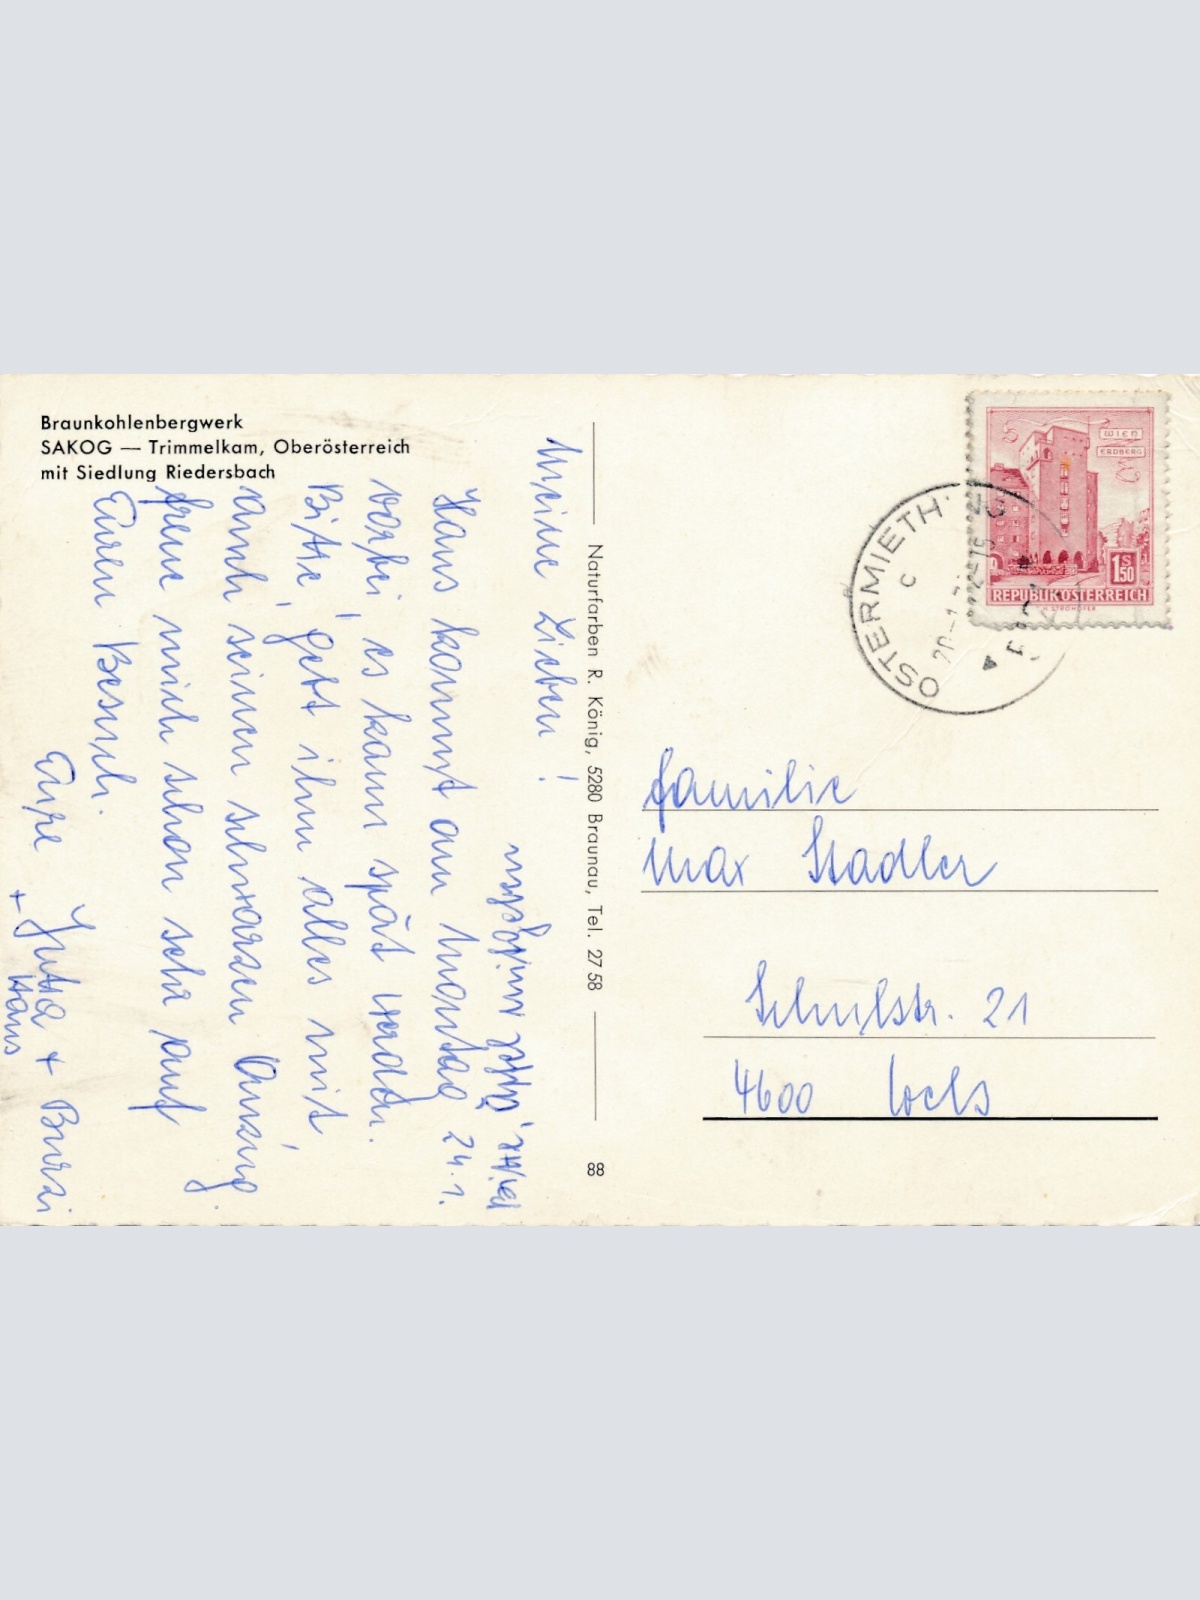 Braunkohlenbergwerk
SAKOG — Trimmelkam, Oberösterreich
mit Siedlung Riedersbach
Meine Lieben!
Hans kommt am Montag 24.1.
vorbei, es kann spät werden.
Bitte, gebt ihm alles mit,
auch seinen schwarzen Anzug.
freue mich schon sehr auf
Euren Besuch.
Eure Jutta + Burzi
+ Hans
Bitte,
Naturfarben R. König, 5280 Braunau, Tel. 27 58
88
WIEN
ERDBERG
1 S 50
REPUBLIK ÖSTERREICH
H. STROHOFER
OSTERMIETH
C
familie
Max Stadler
Schulstr. 21
4600 Wels